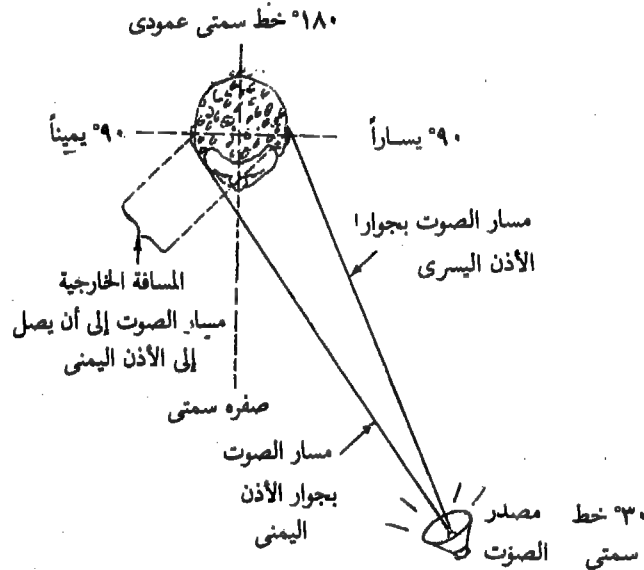 ١٨٠° خط سمتى عمودى
٩٠° يميناً
٩٠° يســاراً
مسار الصوت بجوار ا
الأذن اليسرى
المسافة الخارجية
مسار الصوت إلى أن يصل
إلى الأذن اليمنى
صفره سمتى
مسار الصوت
بجوار الأذن
اليمنى
مصدر
الصوت
٣٠° خط
سمتى